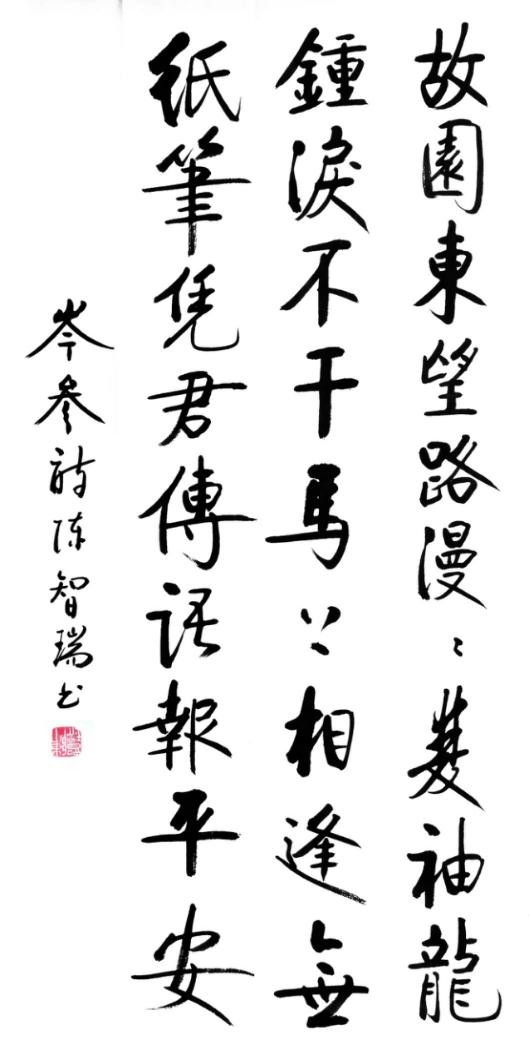 故園東望路漫々雙袖龍
鍾淚不干馬上相逢無
紙筆凭君傳語報平安
岑參詩陈智瑞书